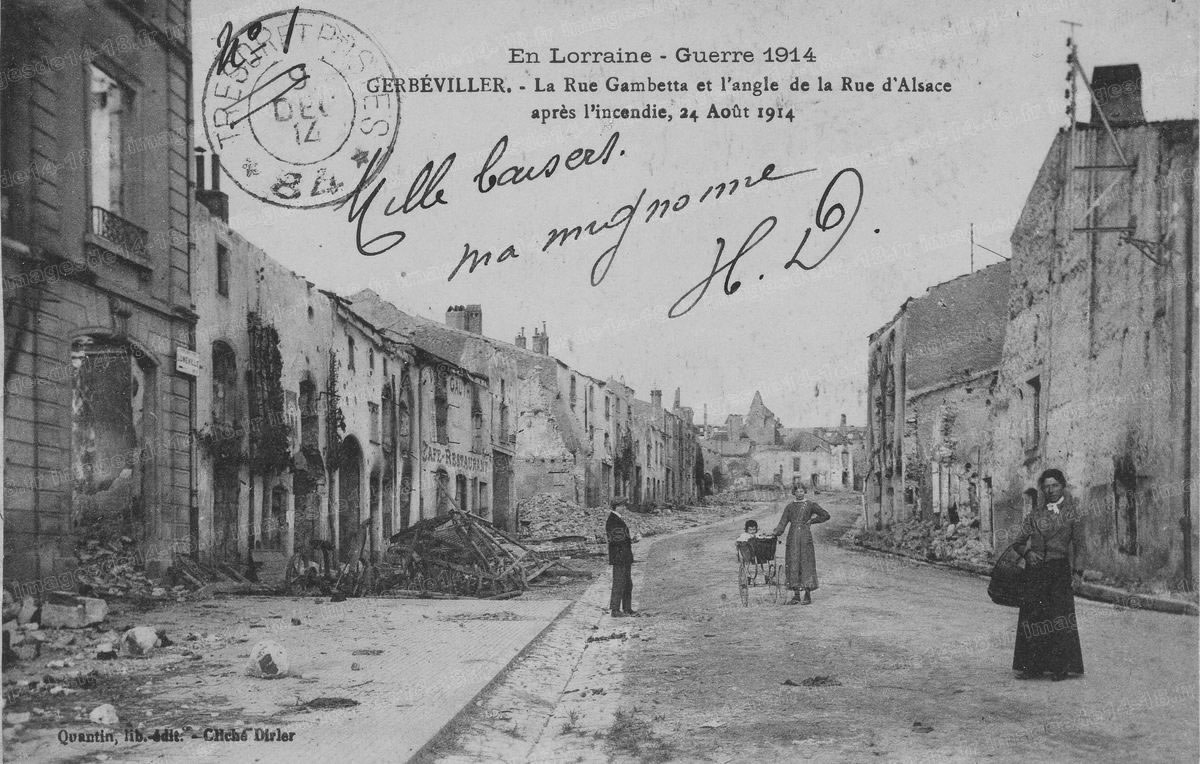 N° 1
TRESOR ET POSTES
9
DEC
14
* 84 *
En Lorraine - Guerre 1914
GERBÉVILLER. - La Rue Gambetta et l'angle de la Rue d'Alsace
après l'incendie, 24 Août 1914
Mille baisers.
ma mignonne
H. D.
CAFÉ-RESTAURANT
Quantin, lib.-édit. - Cliché Dirler
images de 14-18.fr